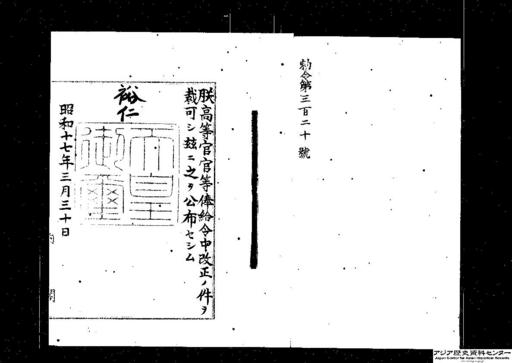 勅令第三百二十號
朕高等官官等俸給令中改正ノ件ヲ
裁可シ玆ニ之ヲ公布セシム
裕仁
天皇御璽
昭和十七年三月三十日
内閣
アジア歴史資料センター
Japan Center for Asian Historical Records